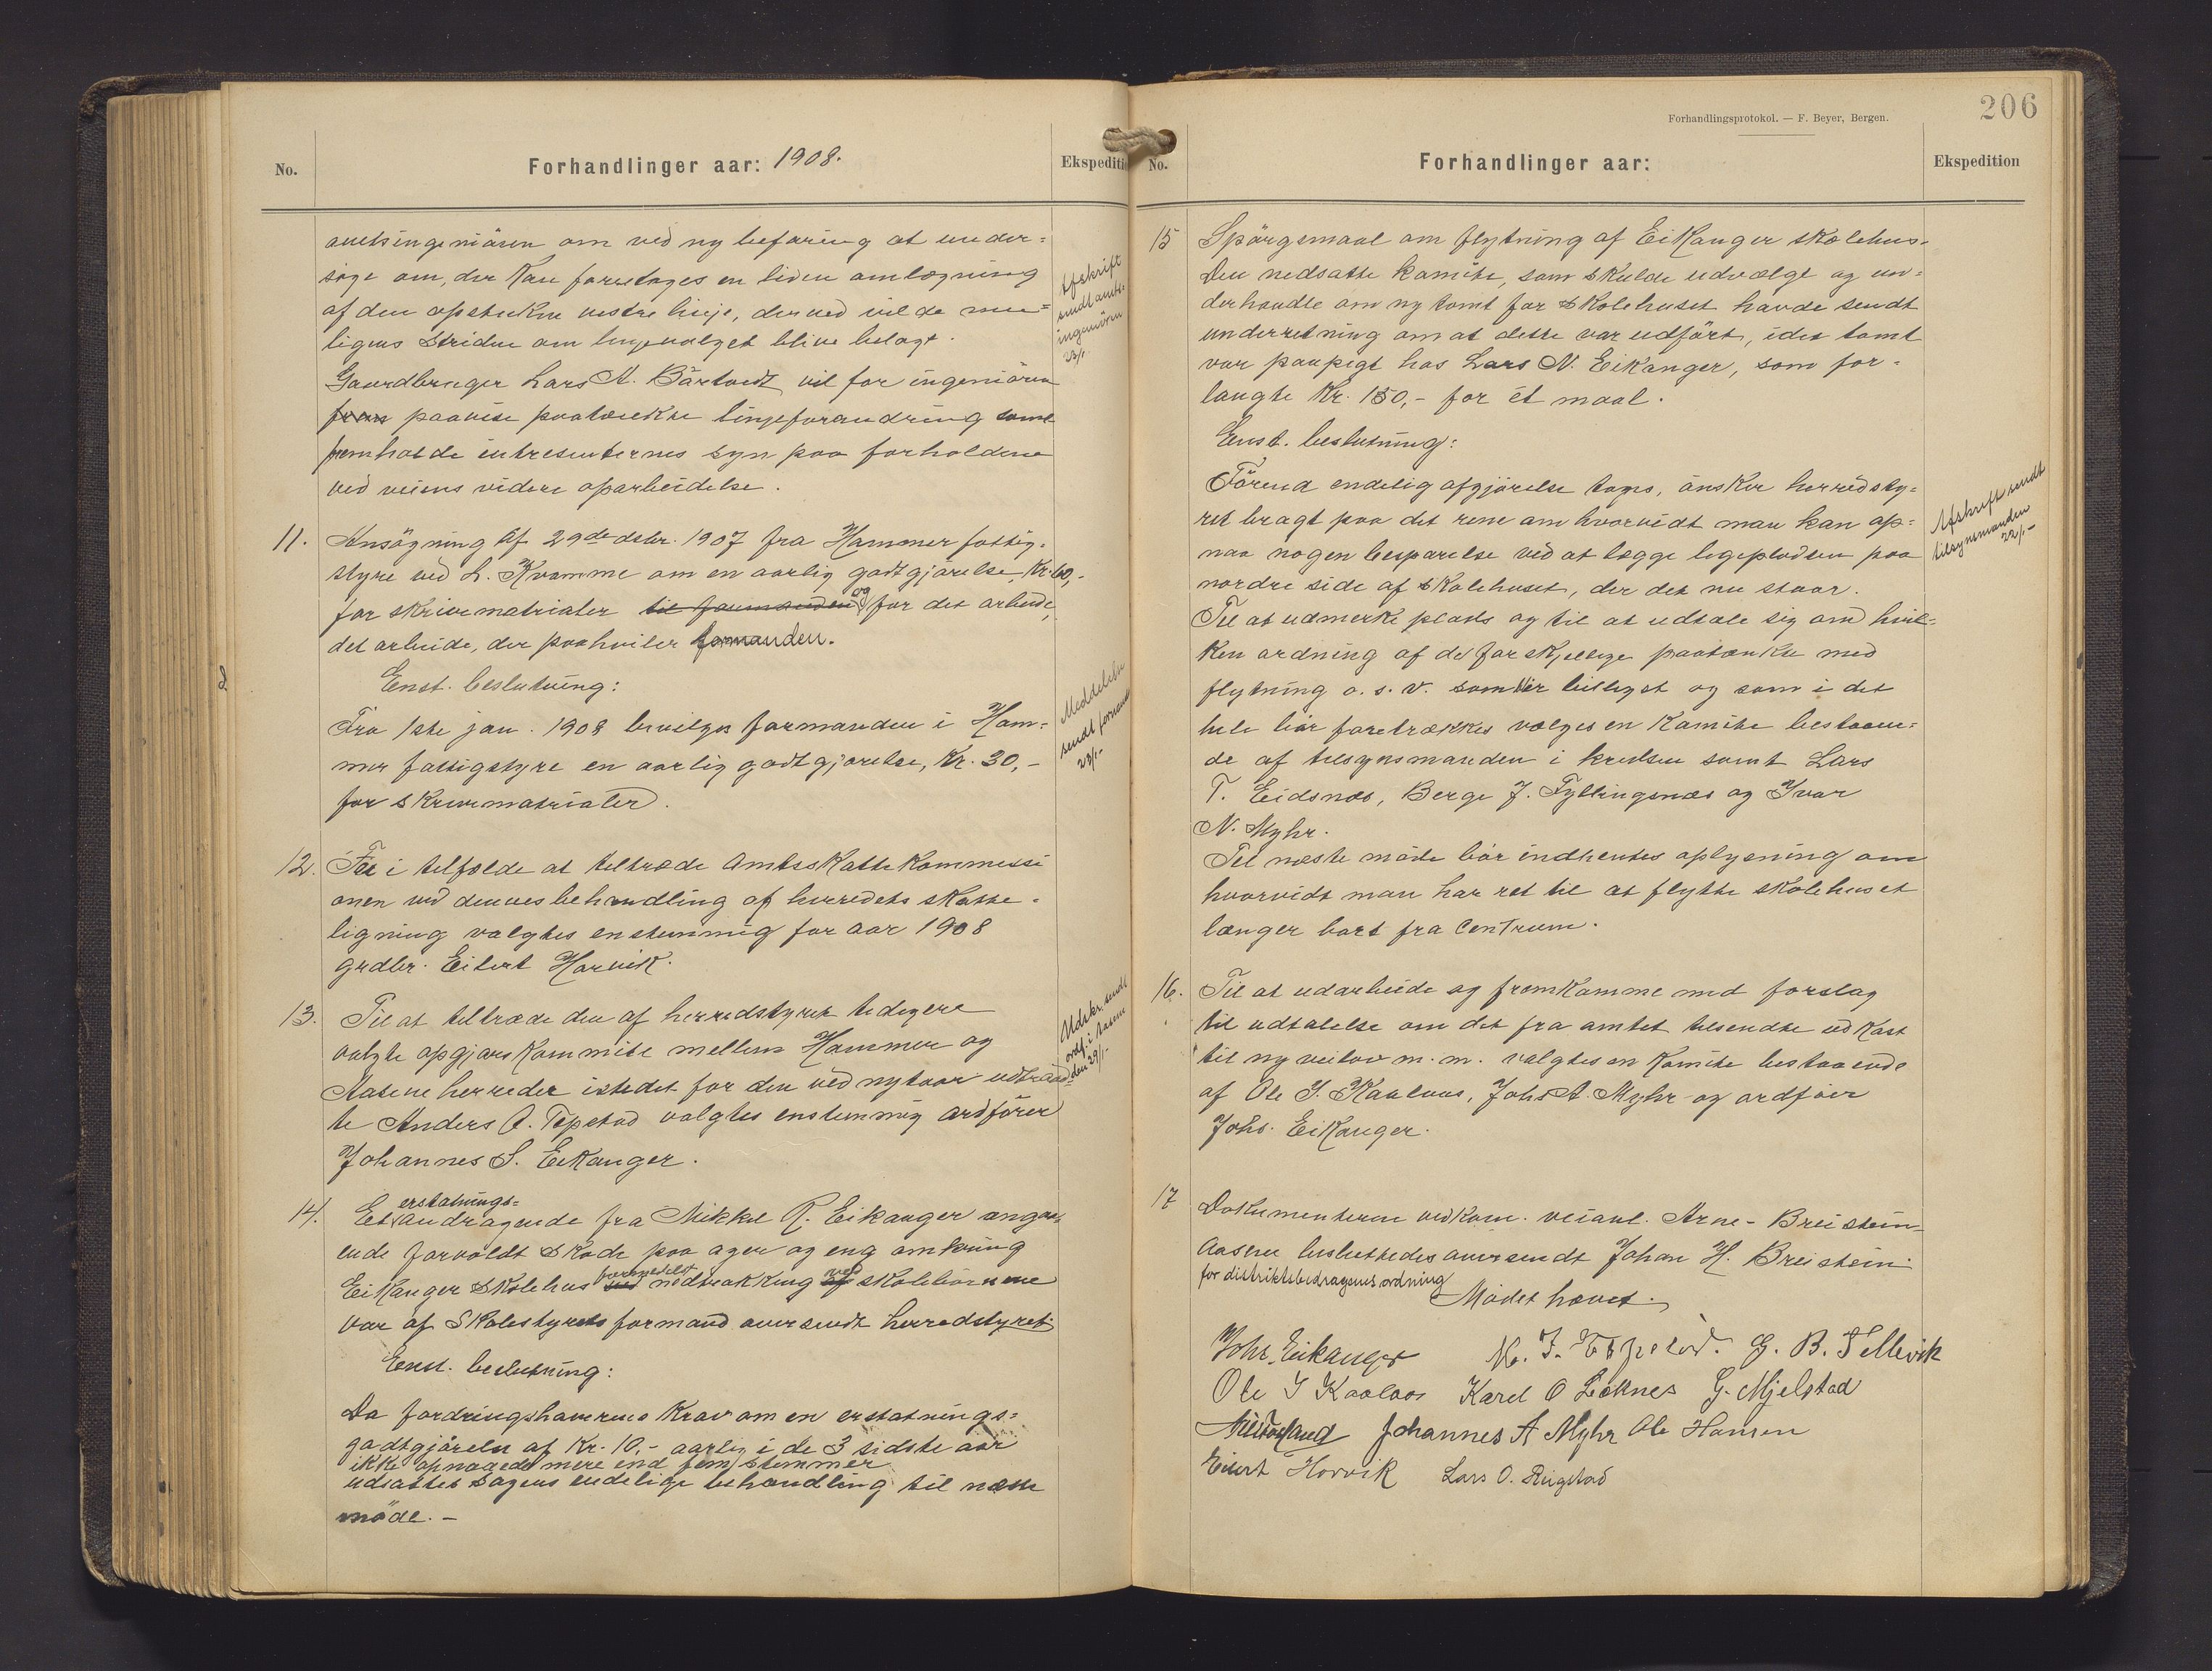 No.
Forhandlinger aar: 1908.
Ekspediti
amtsingeniøren om ved ny befaring at under=
søge om, der kan foretages en liden omlægning
af den opstukne vestre linje, derved vilde mu=
ligens striden om linjevalget blive bilagt.
Gaardbruger Lars A. Børtveidt vil for ingeniøren
fram paavise paatænkte linjeforandring samt
fremholde intresenternes syn paa forholdene
ved veiens videre oparbeidelse.
Afskrift
sendt amts-
ingeniøren
23/1
11. Ansögning af 29de dsbr. 1907 fra Hammer fattig-
styre ved L. Kvamme om en aarlig godtgjørelse, Kr. 60,-
for skrivematrialer til formanden og for det arbeide,
det arbeide, der paahviler formanden.
Enst. beslutning:
Fra 1ste jan. 1908 bevilges formanden i Ham=
mer fattigstyre en aarlig godtgjørelse, Kr. 30,-
for skrivematrialer.
Meddelelse
sendt formand
23/1-
12. Til i tilfælde at tiltræde Amtsskattekommissi
onen ved dennes behandling af herredets skatte-
ligning valgtes enstemmig for aar 1908
grdbr. Eilert Horvik.
13. Til at tiltræde den af herredstyret tidligere
valgte opgjørskommite mellem Hammer og
Aasene herreder istedet for den ved nytaar udtraad=
te Anders A. Tepstad valgtes enstemmig ordfører
Johannes S. Eikanger.
Udskr. sendt
ordf. i Aasene
den 29/1-
14. Et erstatnings= andragende fra Mikkel R. Eikanger angaa-
ende forvoldt skade paa ager og eng omkring
Eikanger skolehus ved formedelst nedtrakking af ved skolebørnene
var af skolestyrets formand oversendt herredstyret.
Enst. beslutning:
Da fordringshaverens krav om en erstatnings=
godtgjørelse af Kr. 10,- aarlig i de 3 sidste aar
ikke opnaaede mere end fem stemmer
udsattes sagens endelige behandling til næste
møde. -
Forhandlingsprotokol. — F. Beyer, Bergen.
206
No.
Forhandlinger aar:
Ekspedition
15 Spørgsmaal om flytning af Eikanger skolehus.
Den nedsatte komite, som skulde udvælge og un=
derhandle om ny tomt for skolehuset havde sendt
underretning om at dette var udført, idet tomt
var paapegt hos Lars N. Eikanger, som for-
langte Kr. 150,- for ét maal.
Enst. beslutning:
Førend endelig afgjørelse tages, ønsker herredsty=
ret bragt paa det rene om hvorvidt man kan op=
naa nogen besparelse ved at lægge legepladsen paa
nordre side af skolehuset, der det nu staar.
Til at udmerke plads og til at udtale sig om hvil=
ken ordning af de forskjellige paatænkte med
flytning o. s. v. som blir billigst og som i det
hele bør foretrækkes vælges en komite bestaaen=
de af tilsynsmanden i kredsen samt Lars
T. Eidsnes, Berge J. Fyllingsnæs og Ivar
N. Myhr.
Til næste møde bør indhentes oplysning om
hvorvidt man har ret til at flytte skolehuset
længer bort fra Centrum.
Afskrift sendt
tilsynsmanden
22/1-
16. Til at udarbeide og fremkomme med forslag
til udtalelse om det fra amtet tilsendte udkast
til ny veilov m. m. valgtes en komite bestaaende
af Ole I. Kaalaas, Johs A. Myhr og ordfører
Johs. Eikanger.
17 Dokumenterne vedkom. veianl. Arne-Breistein-
Aasene besluttedes oversendt Johan H. Breistein
for distriktsbidragens ordning
Mødet hævet.
Johs. Eikanger M. J. Espelid. G. B. Tellevik
Ole I Kaalaas Karel O Leknes G. Mjelstad
Johannes A Myhr Ole Hansen
Eilert Horvik Lars O. Rigstad